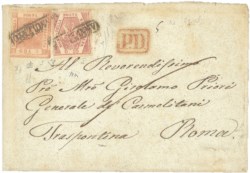 PD
Al Reverendissimo
Pre Mro Girolamo Priori
Generale de' Carmelitani
Traspontina Roma